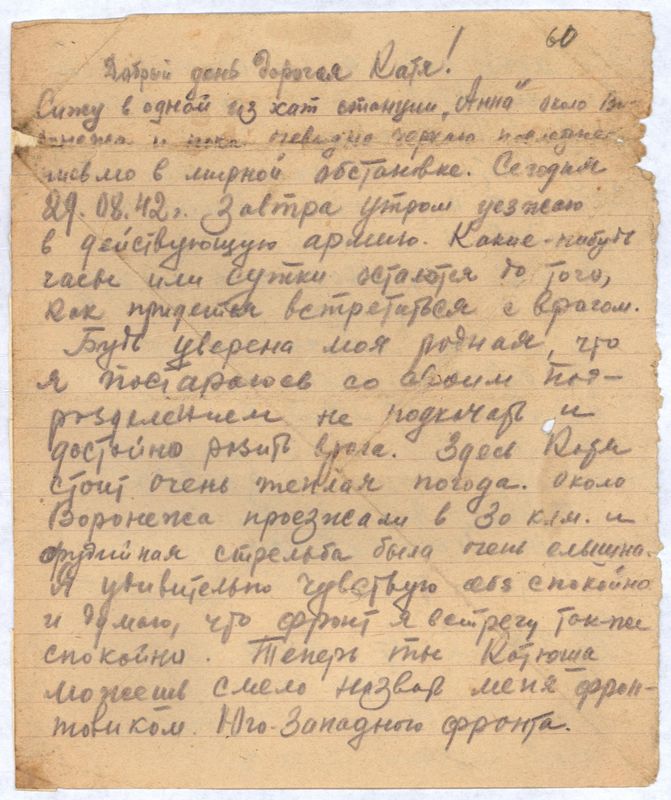 60
Добрый день дорогая Катя!
Сижу в одной из хат станции „Анна“ около Во-
ронежа и пока очевидно черкаю последнее
письмо в мирной обстановке. Сегодня
29.08.42г. Завтра утром уезжаю
в действующую армию. Какие-нибудь
часы или сутки остаются до того,
как придется встретиться с врагом.
Будь уверена моя родная, что
я постараюсь со своим под-
разделением не подкачать и
достойно разить врага. Здесь Катя
стоит очень теплая погода. Около
Воронежа проезжали в 30 клм. и
орудийная стрельба была очень слышна.
Я удивительно чувствую себя спокойно
и думаю, что фронт я встречу так-же
спокойно. Теперь ты Катюша
можешь смело назвать меня фрон-
товиком Юго-Западного фронта.